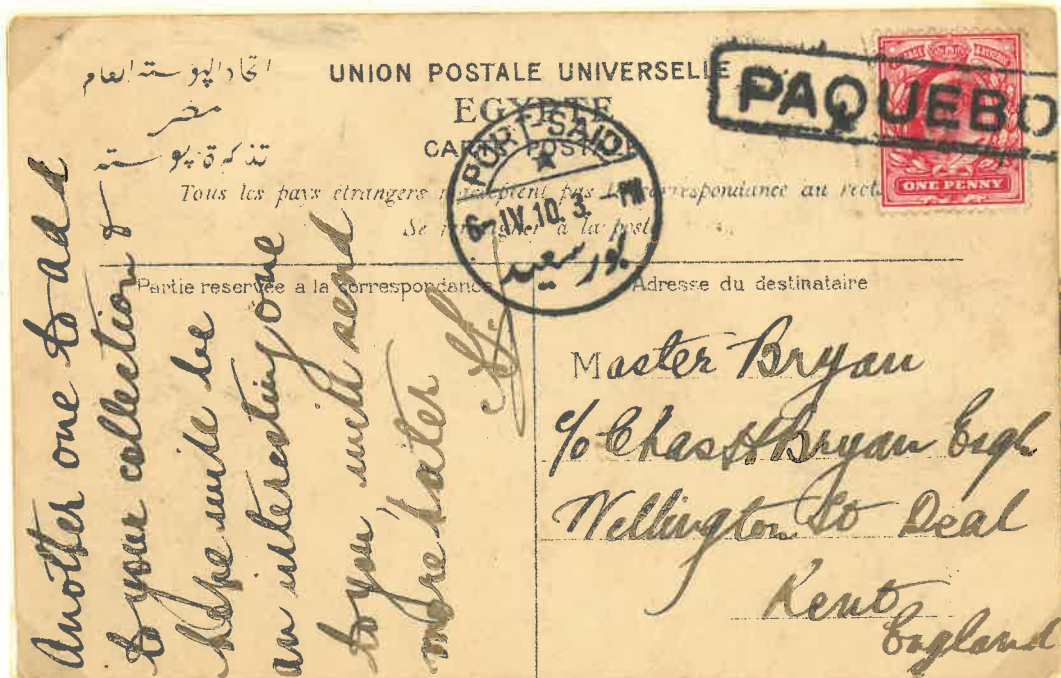 اتحاد البوسته العام
مصر
تذكرة بوسته
UNION POSTALE UNIVERSELLE
EGYPTE
CARTE POSTALE
Tous les pays étrangers n'acceptent pas la correspondance au recto
Se renseigner à la poste
PAQUEBO
ONE PENNY
PORT-SAID
6-IV.10. 3 -PM
بور سعيد
Partie reservée a la correspondance
Adresse du destinataire
Another one to add
to your collection &
hope will be
an interesting one
to you will send
more later
Master Bryan
c/o Chas H Bryan Esqr
Wellington St Deal
Kent
England